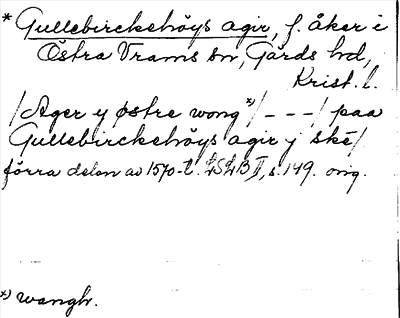 * Gullebirckehöys agir, f. åker i
Östra Vrams sn, Gärds hd,
Krist. l.
/Ager y østre wong *)/ - - - / paa
Gullebirckehöys agir j skë/
förra delen av 1570-t. LSLB II, s. 149. orig.
*) wangh.